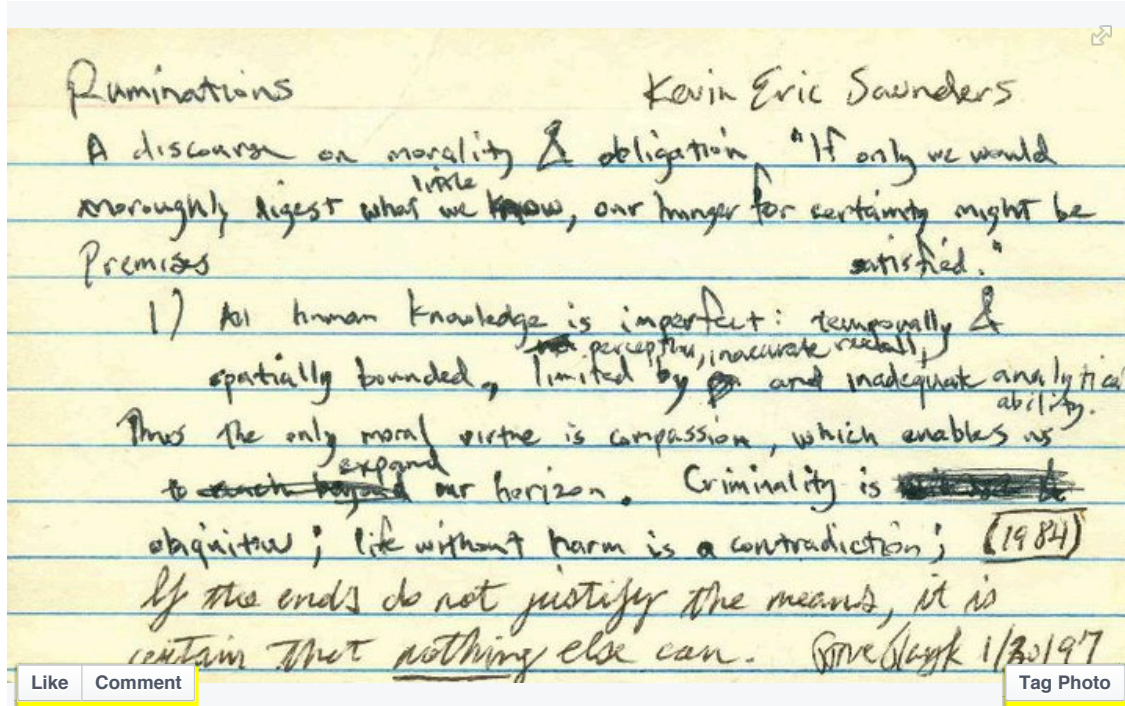 Ruminations Kevin Eric Saunders
A discourse on morality & obligation "If only we would
thoroughly digest what little we know, our hunger for certainty might be
Premises satisfied."
1) All human knowledge is imperfect: temporally &
spatially bounded, limited by perception, inaccurate recall, and inadequate analytical
ability.
Thus the only moral virtue is compassion, which enables us
to expand our horizon. Criminality is
ubiquitous; life without harm is a contradiction; (1984)
If the ends do not justify the means, it is
certain that nothing else can. 1/30/97
Like Comment Tag Photo